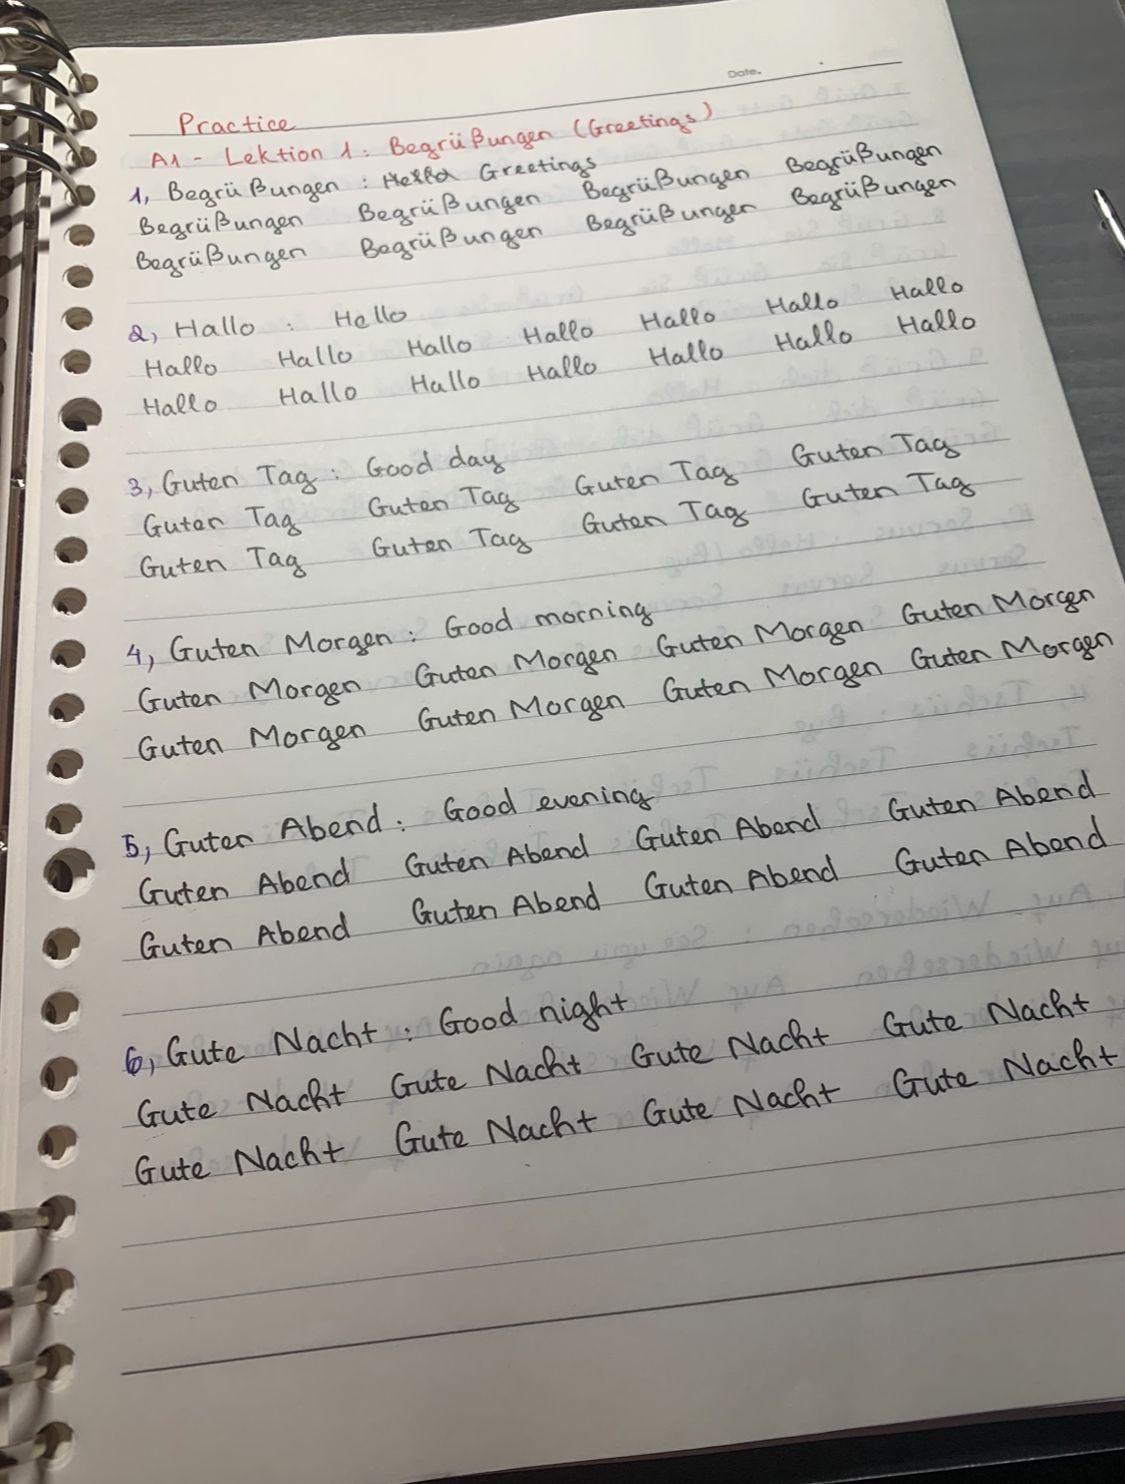 Date.
Practice
A1 - Lektion 1: Begrüßungen (Greetings)
1, Begrüßungen : Greetings
Begrüßungen Begrüßungen Begrüßungen Begrüßungen
Begrüßungen Begrüßungen Begrüßungen Begrüßungen
2, Hallo : Hello
Hallo Hallo Hallo Hallo Hallo Hallo Hallo
Hallo Hallo Hallo Hallo Hallo Hallo Hallo
3, Guten Tag : Good day
Guten Tag Guten Tag Guten Tag Guten Tag
Guten Tag Guten Tag Guten Tag Guten Tag
4, Guten Morgen : Good morning
Guten Morgen Guten Morgen Guten Morgen Guten Morgen
Guten Morgen Guten Morgen Guten Morgen Guten Morgen
5, Guten Abend : Good evening
Guten Abend Guten Abend Guten Abend Guten Abend
Guten Abend Guten Abend Guten Abend Guten Abend
6, Gute Nacht : Good night
Gute Nacht Gute Nacht Gute Nacht Gute Nacht
Gute Nacht Gute Nacht Gute Nacht Gute Nacht